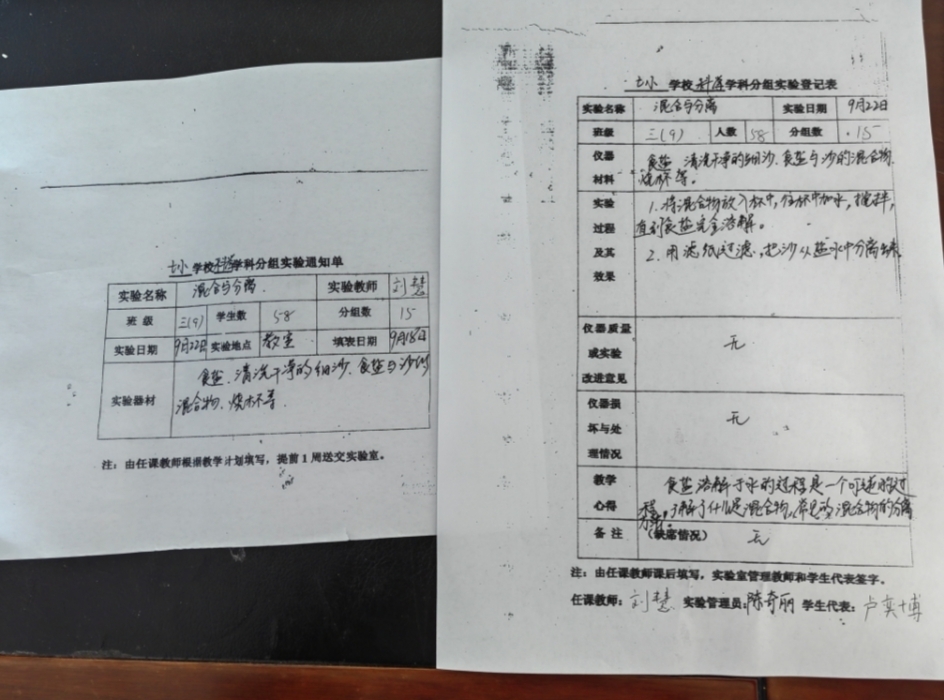 七小 学校 科学 学科分组实验通知单
实验名称 混合与分离 实验教师 刘慧
班 级 三(9) 学生数 58 分组数 15
实验日期 9月22日 实验地点 教室 填表日期 9月18日
实验器材 食盐、清洗干净的细沙、食盐与沙的
混合物、烧杯等.
注：由任课教师根据教学计划填写，提前1周送交实验室。
七小 学校 科学 学科分组实验登记表
实验名称 混合与分离 实验日期 9月22日
班级 三(9) 人数 58 分组数 15
仪器材料 食盐 清洗干净的细沙、食盐与沙的混合物、
烧杯等。
实验过程及其效果 1. 将混合物放入杯中，往杯中加水，搅拌，
直到食盐完全溶解。
2. 用滤纸过滤，把沙从盐水中分离出来
仪器质量或实验改进意见 无
仪器损坏与处理情况 无
教学心得 食盐溶解于水的过程是一个可逆的过
程，了解了什么是混合物，常见的混合物的分离
方法。
备 注 （缺席情况） 无
注：由任课教师课后填写，实验室管理教师和学生代表签字。
任课教师：刘慧 实验管理员：陈奇丽 学生代表：卢奕博